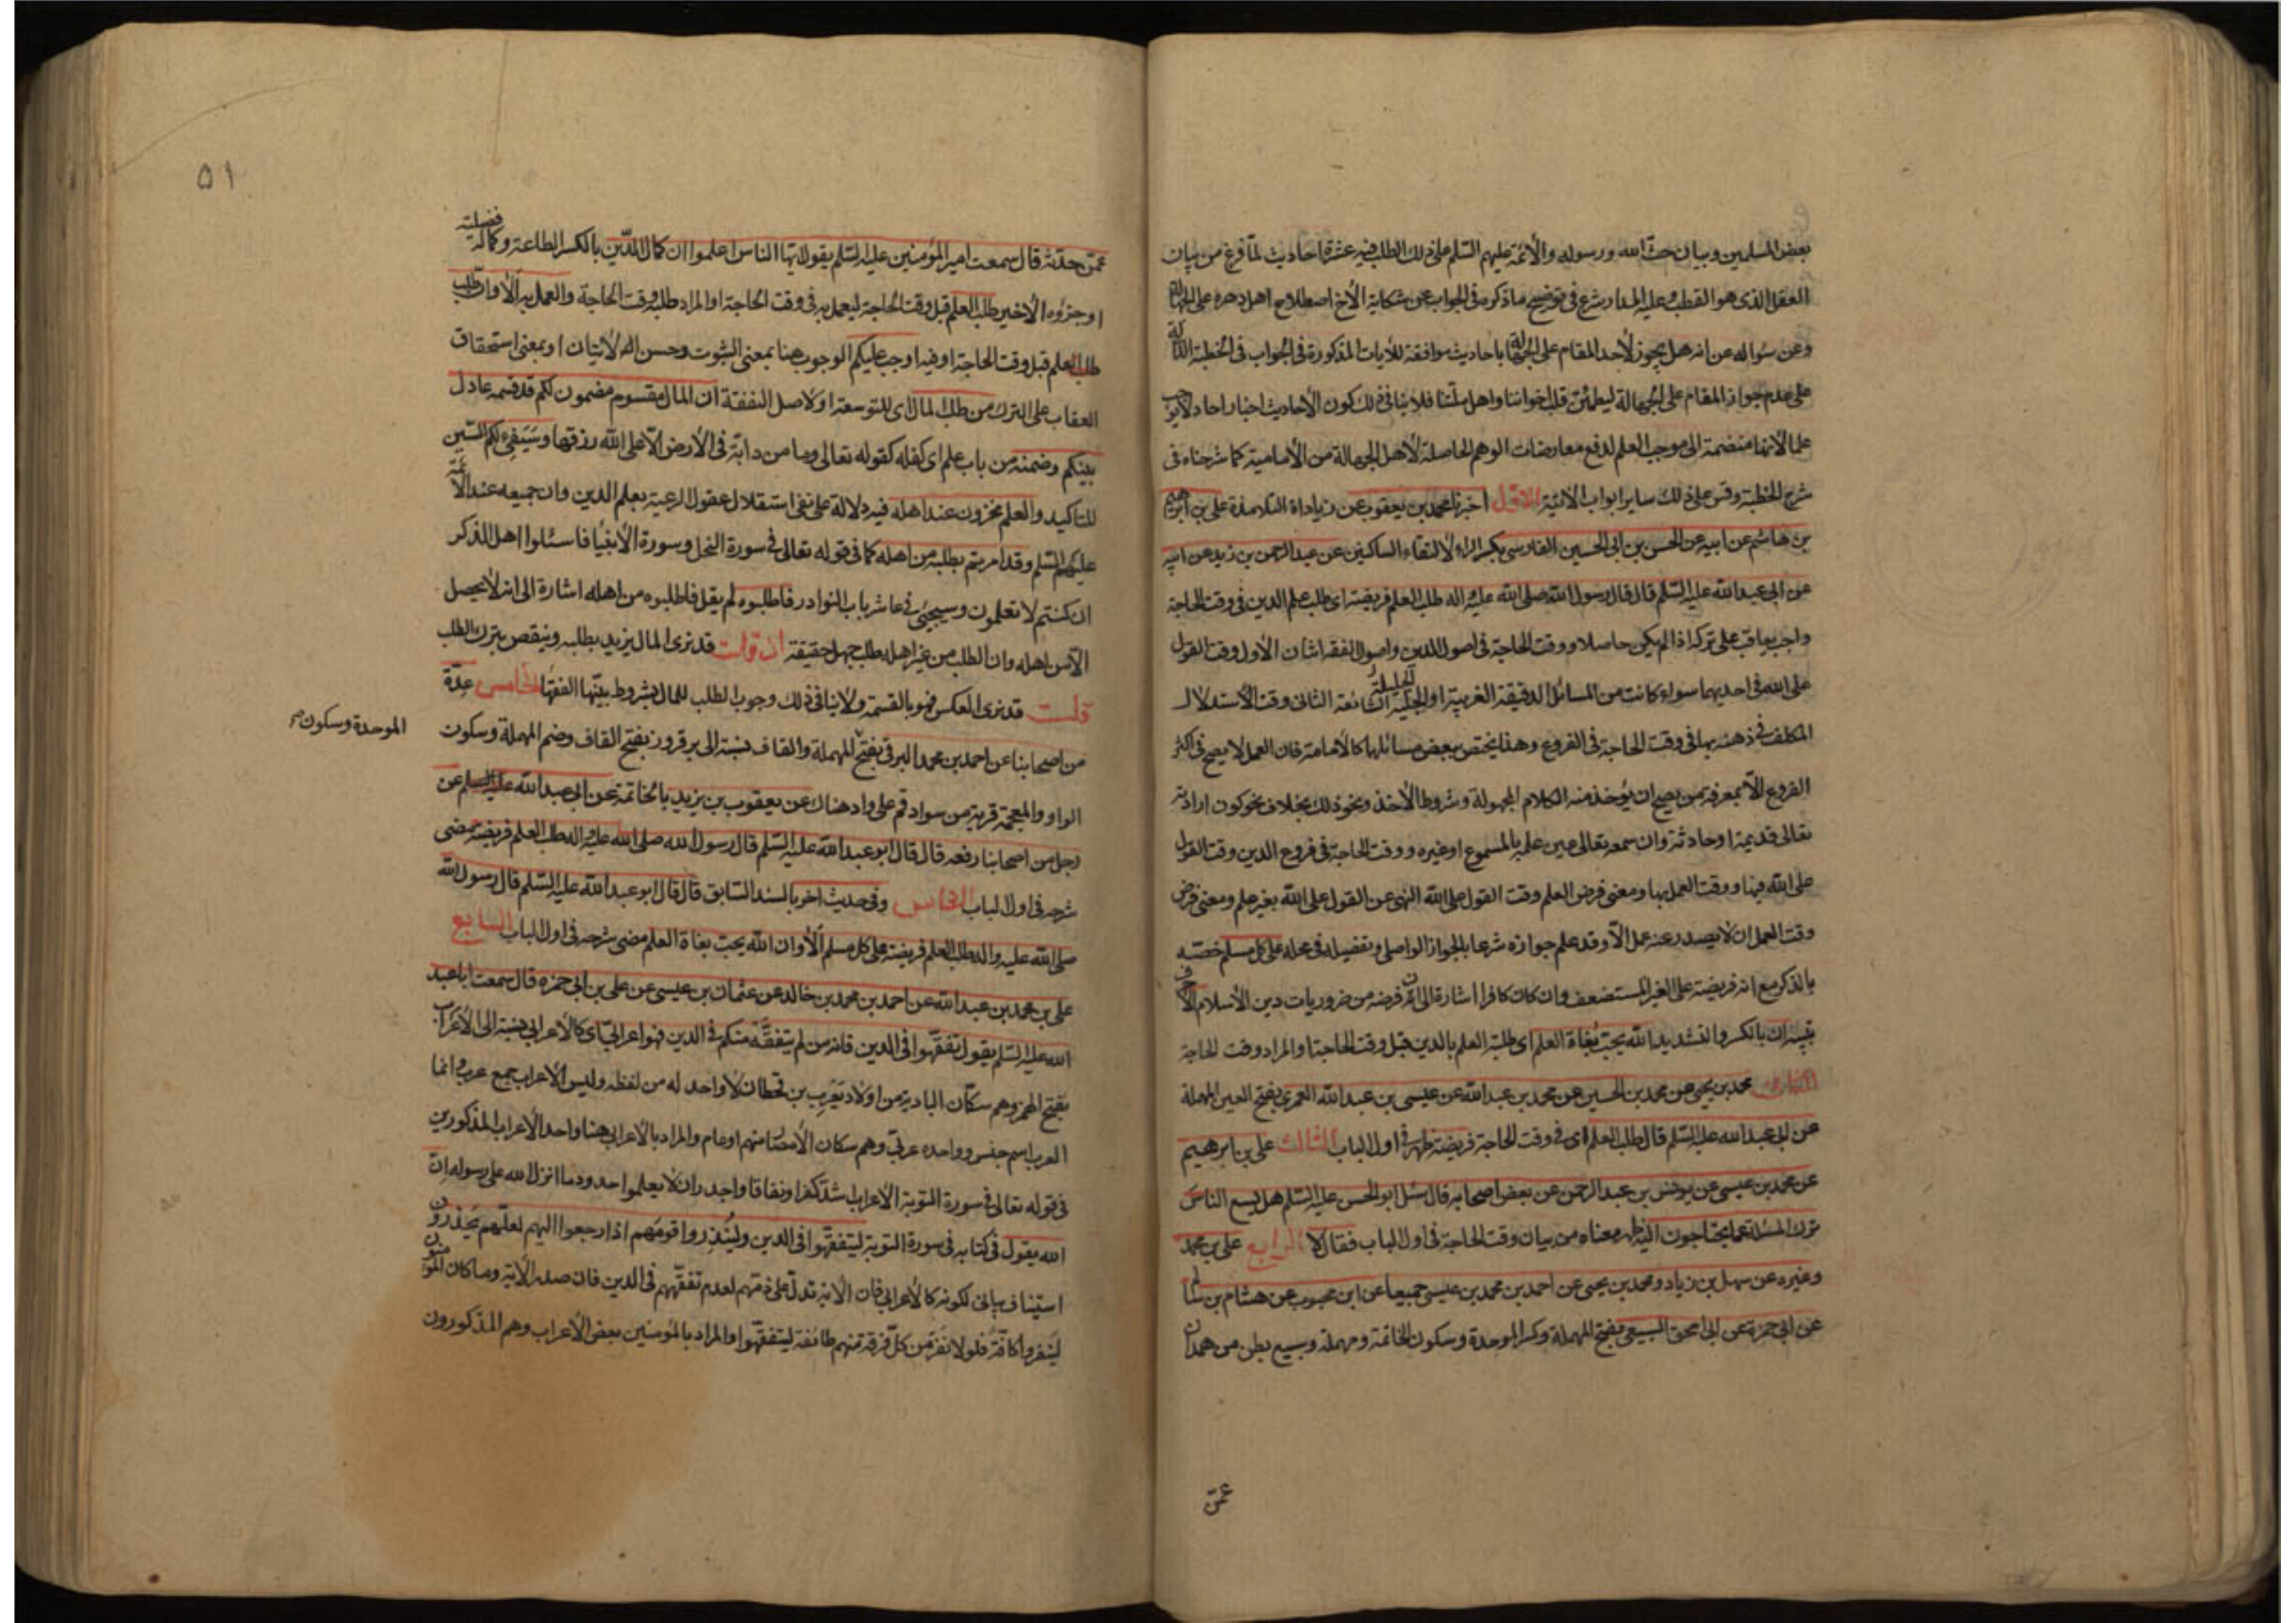 بعض المسلمين وبيان حث الله ورسوله والأئمة عليهم السّلم على ذلك الطلب فيه عشرة احاديث لمّا فرغ من بيان
العقل الذى هو القطب وعليه المدار شرع فى توضيح ما ذكره فى الجواب عن شكاية الأخ اصطلاح اهل دهره على الجهالة
وعن سؤاله عن انه هل يجوز لأحد المقام على الجهالة باحاديث موافقة للآيات المذكورة فى الجواب فى الخطبة الدالة
على عدم جواز المقام على الجهالة ليطمئن قلب اخواننا واهل ملتنا فلا ينافى ذلك كون الأحاديث اخبار احاد لا يوجب
علما لأنها منضمة الى موجب العلم لدفع معارضات الوهم الحاصلة لأهل الجهالة من الأمامية كما شرحناه فى
شرح الخطبة وقس على ذلك ساير ابواب الاتية الاوّل اخبرنا محمد بن يعقوب عن زيادات التلامذة على بن ابرهيم
بن هاشم عن ابيه عن الحسن بن ابى الحسين الفارسى بكسر الراء لالتقاء الساكنين عن عبد الرحمن بن زيد عن ابيه
عن ابى عبد الله عليه السّلم قال قال رسول الله صلى الله عليه واله طلب العلم فريضة اى طلب علم الدين فى وقت الحاجة
واجب يعاقب على تركه اذا لم يكن حاصلا ووقت الحاجة فى اصول الدين واصول الفقه اثنان الأول وقت القول
على الله فى احديهما سواء كانت من المسائل الدقيقة الغريبة او الجليلة الشائعة الثانى وقت الأستدلال
المكلف فى ذهنه بها فى وقت الحاجة فى الفروع وهذا يختص ببعض مسائلها كالأمامة فان العمل لا يصح فى اكثر
الفروع الا بمعرفة من يصح ان يؤخذ منه الكلام المجهولة وشروط الأخذ ونحو ذلك بخلاف نحو كون ارادته
تعالى قديمة او حادثة وان سمعه تعالى عين علمه بالمسموع او غيره ووقت الحاجة فى فروع الدين وقت القول
على الله فيها ووقت العمل بها ومعنى فرض العلم وقت القول على الله النهى عن القول على الله بغير علم ومعنى فرض
وقت العمل ان لا يصدر عنه عمل الا وقد علم جوازه شرعا بالجواز الواصلى وتفصيله فى محله على كل مسلم خصّه
بالذكر مع انه فريضة على الغير المستضعف وان كان كافرا اشارة الى ان فرضه من ضروريات دين الأسلام الا حرف
تنبيه ان بالكسر والتشديد الله يحب بغاة العلم اى طلبة العلم بالدين قبل وقت الحاجة او المراد وقت الحاجة
الثانى محمد بن يحيى عن محمد بن الحسين عن محمد بن عبد الله عن عيسى بن عبد الله العمرى بفتح العين المهملة
عن ابى عبد الله عليه السّلم قال طلب العلم اى فى وقت الحاجة فريضة ظهر فى اول الباب الثالث على بن ابرهيم
عن محمد بن عيسى عن يونس بن عبد الرحمن عن بعض اصحابه قال سئل ابو الحسن عليه السّلم هل يسع الناس
ترك المسئلة عما يحتاجون اليه ظهر معناه من بيان وقت الحاجة فى اول الباب فقال لا الرابع على بن محمد
وغيره عن سهل بن زياد ومحمد بن يحيى عن احمد بن محمد بن عيسى جميعا عن ابن محبوب عن هشام بن سالم
عن ابى حمزة عن ابى اسحق السبيعى بفتح المهملة وكسر الموحدة وسكون الخاتمة ومهملة وسبيع بطن من همدان
عمّن
٥١
عمّن حدّثه قال سمعت امير المؤمنين عليه السّلم يقول ايها الناس اعلموا ان كمال الدّين بالكسر الطاعة وكماله فضيلته
او جزؤه الأخير طلب العلم قبل وقت الحاجة ليعمل به فى وقت الحاجة او المراد طلبه وقت الحاجة والعمل به ألا وان طلب
طلب العلم قبل وقت الحاجة او فيه اوجب عليكم الوجوب هنا بمعنى الثبوت وحسن الأتيان او بمعنى استحقاق
العقاب على الترك من طلب المال اى للتوسعة او لاصل النفقة ان المال مقسوم مضمون لكم قد قسمه عادل
بينكم وضمنه من باب علم اى كفله كقوله تعالى وما من دابّة فى الأرض الا على الله رزقها وسيفى لكم السين
للتاكيد والعلم مخزون عند اهله فيه دلالة على نفى استقلال عقول الرعية بعلم الدين وان جميعه عند الأئمّة
عليهم السّلم وقد امرتم بطلبه من اهله كما فى قوله تعالى فى سورة النحل وسورة الأنبياء فاسئلوا اهل الذكر
ان كنتم لا تعلمون وسيجئ فى عاشر باب النوادر فاطلبوه لم يقل فاطلبوه من اهله اشارة الى انه لا يحصل
الا من اهله وان الطلب من غير اهله طلب جهل حقيقة ان قلت قد نرى المال يزيد بطلبه وينقص بترك الطلب
قلت قد نرى العكس فهو بالقسمة ولا ينافى ذلك وجوب الطلب للمال بشروط بيّنها الفقهاء الخامس عدّة
من اصحابنا عن احمد بن محمد البرقى بفتح المهملة والقاف نسبة الى برقروز بفتح القاف وضم المهملة وسكون
الموحدة وسكون صح
الواو والمعجمة قرية من سواد قم على واد هناك عن يعقوب بن يزيد بالخاتمة عن ابى عبد الله عليه السلم عن
رجل من اصحابنا رفعه قال قال ابو عبد الله عليه السّلم قال رسول الله صلى الله عليه واله طلب العلم فريضة مضى
شرحه فى اول الباب الخامس وفى حديث اخر بالسند السابق قال قال ابو عبد الله عليه السّلم قال رسول الله
صلى الله عليه واله طلب العلم فريضة على كل مسلم ألا وان الله يحب بغاة العلم مضى شرحه فى اول الباب السابع
على بن محمد بن عبد الله عن احمد بن محمد بن خالد عن عثمان بن عيسى عن على بن ابى حمزه قال سمعت ابا عبد
الله عليه السّلم يقول تفقّهوا فى الدين فانه من لم يتفقّه منكم فى الدين فهو اعرابىّ اى كالأعرابى نسبة الى الأعراب
بفتح الهمز وهم سكّان البادية من اولاد يعرب بن قحطان لا واحد له من لفظه وليس الأعراب جمع عرب وانما
العرب اسم جنس وواحده عربىّ وهم سكان الأمصار منهم او عام والمراد بالأعرابى هنا واحد الأعراب المذكورين
فى قوله تعالى فى سورة التوبة الأعراب اشدّ كفرا ونفاقا واجدر ان لا يعلموا حدود ما انزل الله على رسوله انّ
الله يقول فى كتابه فى سورة التوبة ليتفقهوا فى الدين ولينذروا قومهم اذا رجعوا اليهم لعلّهم يحذرون
استيناف بيانى لكونه كالأعرابى فان الأية تدلّ على ذمّهم لعدم تفقّههم فى الدين فان صدر الأية وما كان المؤمنون
لينفروا كافّة فلولا نفر من كلّ فرقة منهم طائفة ليتفقّهوا والمراد بالمؤمنين بعض الأعراب وهم المذكورون